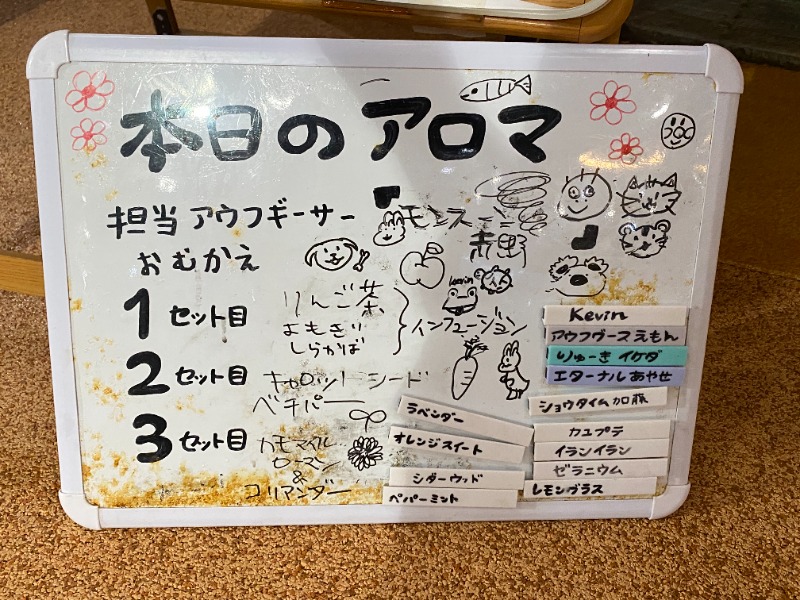 本日のアロマ
担当 アウフギーサー
モンスーン
赤野
おむかえ
1セット目
りんご茶
よもぎ
しらかば
インフュージョン
Kevin
2セット目
キャロットシード
ベチバー
3セット目
カモマイル
ローマン
&
コリアンダー
Kevin
アウフグースえもん
りゅーき イケダ
エターナル あやせ
ショウタイム加藤
ラベンダー
オレンジスイート
シダーウッド
ペパーミント
カユプテ
イランイラン
ゼラニウム
レモングラス